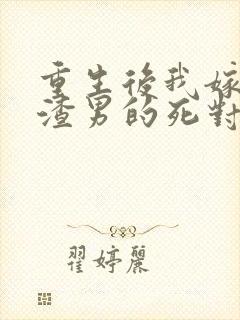 重生後我嫁
渣男的死對
翟婷麗